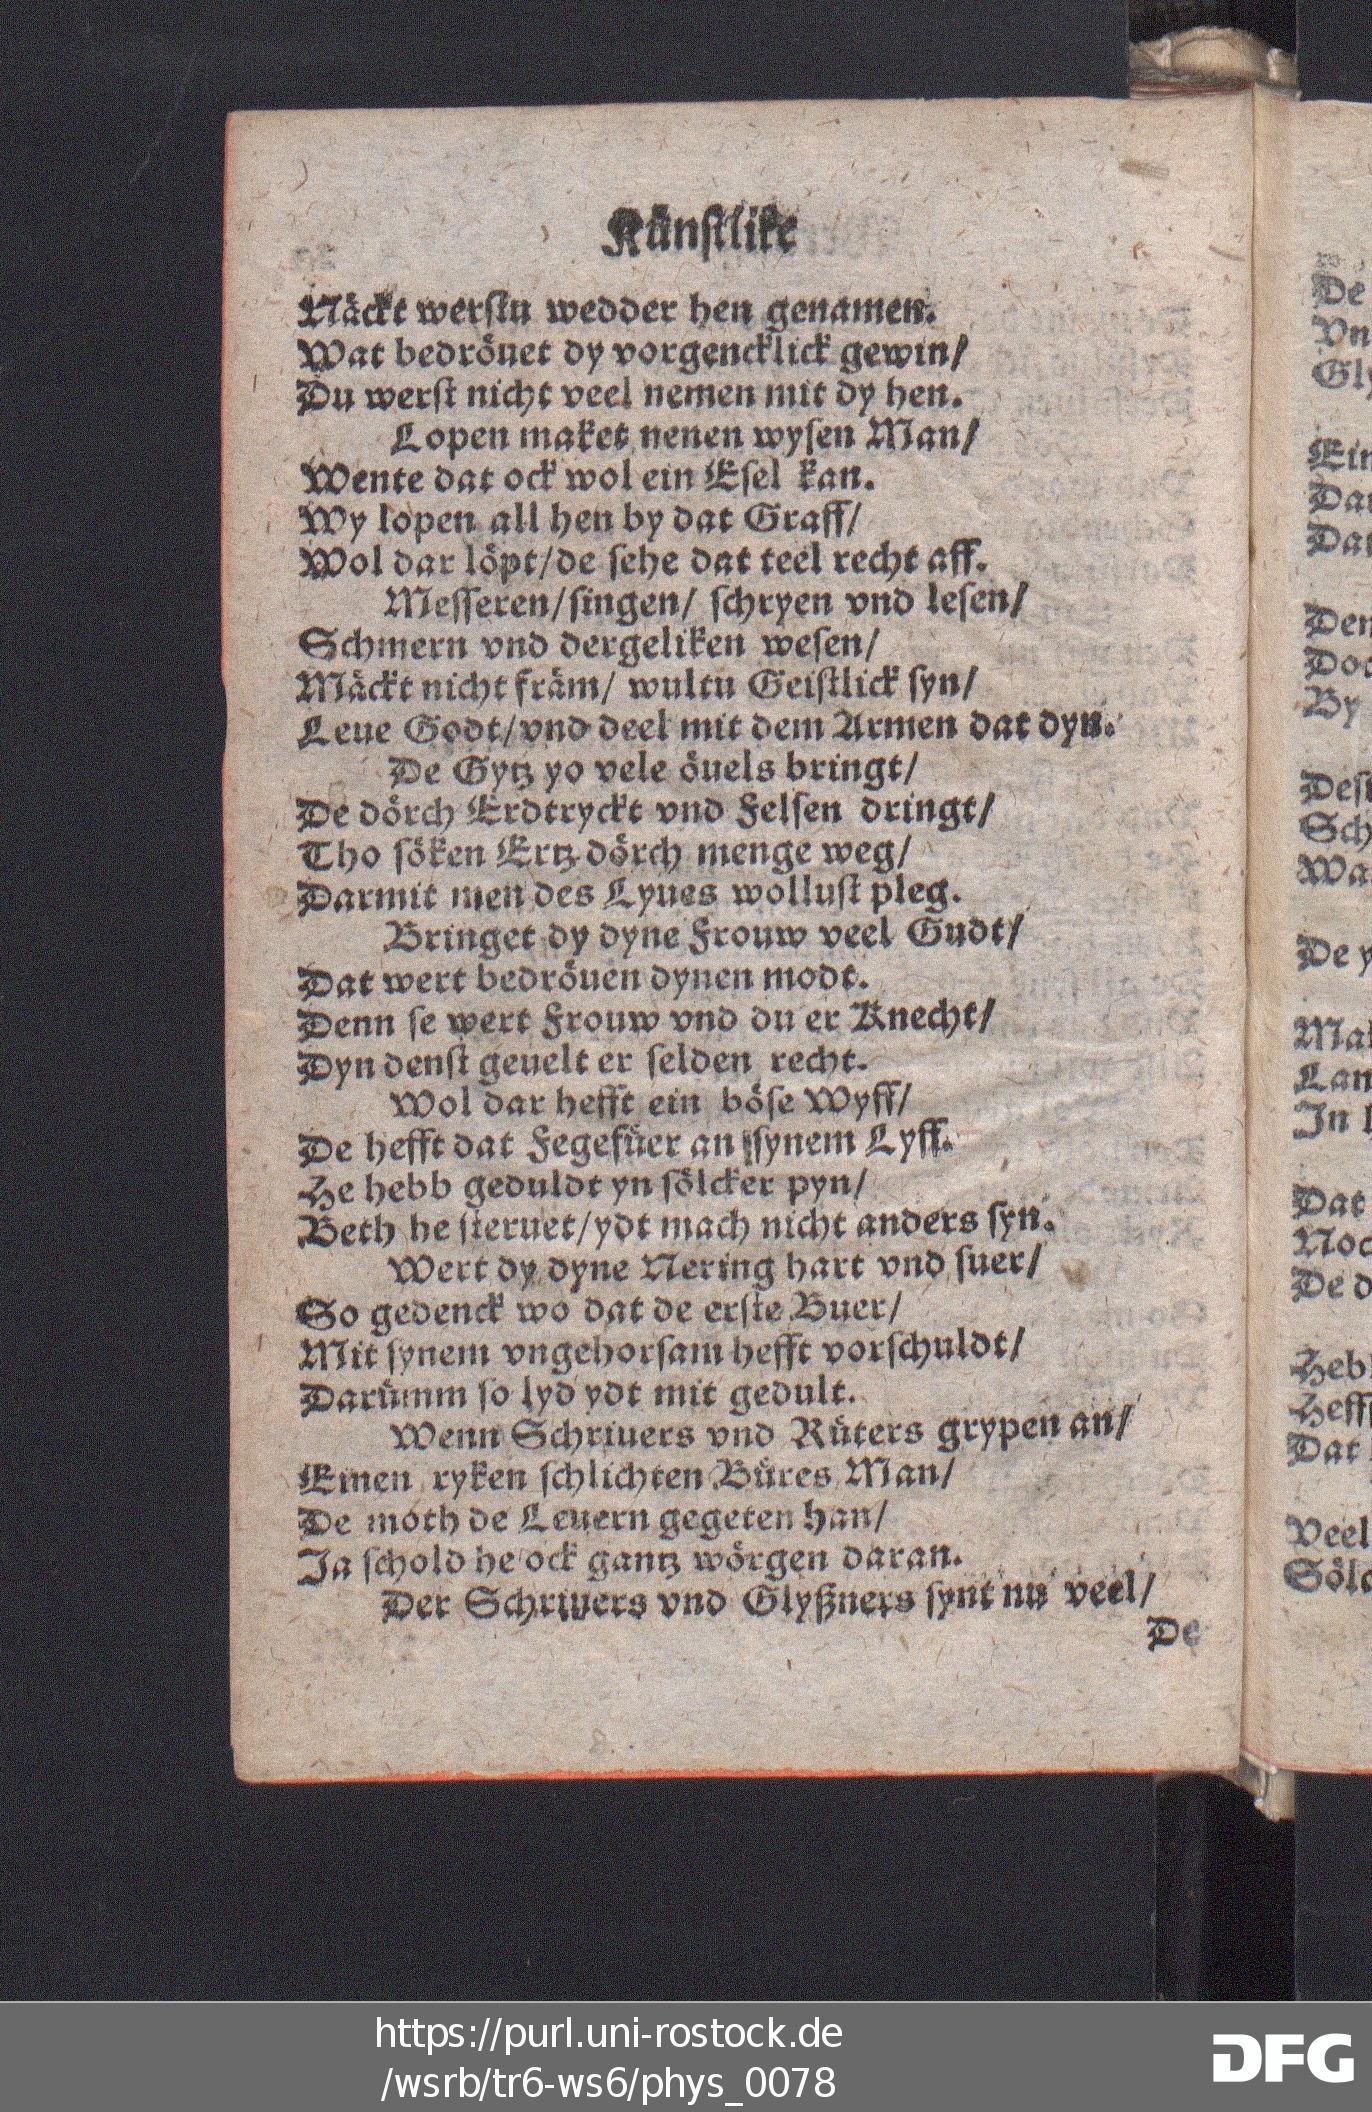 Künstlike
Näckt werstu wedder hen genamen.
Wat bedröuet dy vorgencklick gewin/
Du werst nicht veel nemen mit dy hen.
Lopen maket nenen wysen Man/
Wente dat ock wol ein Esel kan.
Wy lopen all hen by dat Graff/
Wol dar löpt/de sehe dat teel recht aff.
Messeren/singen/ schryen vnd lesen/
Schmern vnd dergeliken wesen/
Mäckt nicht främ/ wultu Geistlick syn/
Leue Godt/vnd deel mit dem Armen dat dyn.
De Gytz yo vele öuels bringt/
De dörch Erdtryckt vnd Felsen dringt/
Tho söken Ertz dörch menge weg/
Darmit men des Lyues wollust pleg.
Bringet dy dyne Frouw veel Gudt/
Dat wert bedröuen dynen modt.
Denn se wert Frouw vnd du er Knecht/
Dyn denst geuelt er selden recht.
Wol dar hefft ein böse Wyff/
De hefft dat Fegefüer an synem Lyff.
He hebb geduldt yn sölcker pyn/
Beth he steruet/ydt mach nicht anders syn.
Wert dy dyne Nering hart vnd suer/
So gedenck wo dat de erste Buer/
Mit synem vngehorsam hefft vorschuldt/
Darümm so lyd ydt mit gedult.
Wenn Schriuers vnd Rüters grypen an/
Einen ryken schlichten Büres Man/
De moth de Leuern gegeten han/
Ja schold he ock gantz wörgen daran.
Der Schriuers vnd Glyßners synt nu veel/
De
De
Vn
Gly
Ein
Dat
Dat
Den
By
Sch
De y
Man
In
Dat
Noc
De d
Hebb
Heff
Dat
Veel
Söl
https://purl.uni-rostock.de
/wsrb/tr6-ws6/phys_0078
DFG